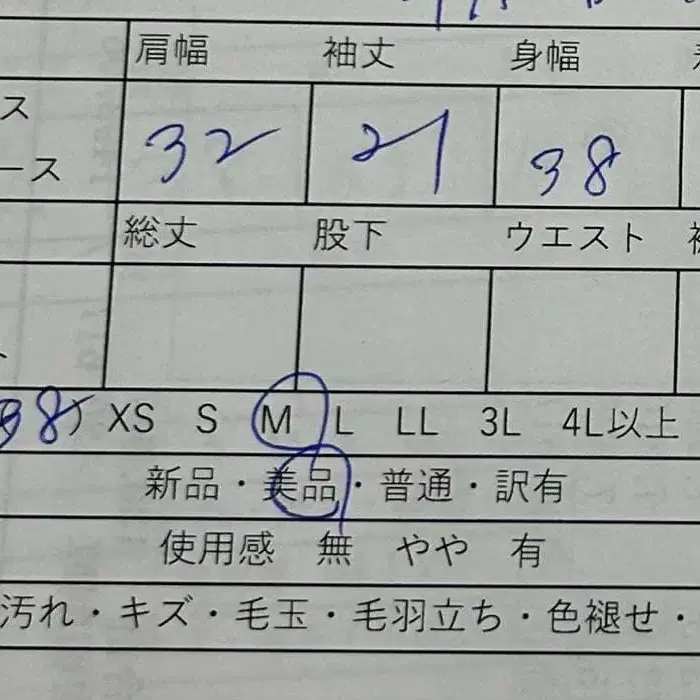 肩幅 袖丈 身幅
ス
ース 32 21 38
総丈 股下 ウエスト
38) XS S M L LL 3L 4L以上
新品・美品・普通・訳有
使用感 無 やや 有
汚れ・キズ・毛玉・毛羽立ち・色褪せ・